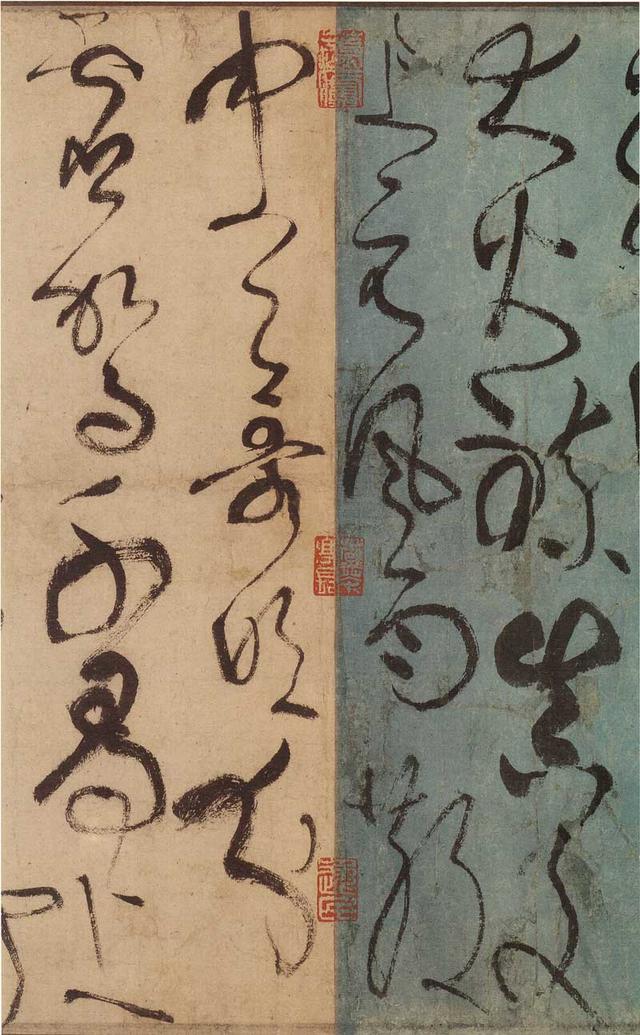 大火練真文
上元風雨散
中天哥吹分
虛駕千尋上